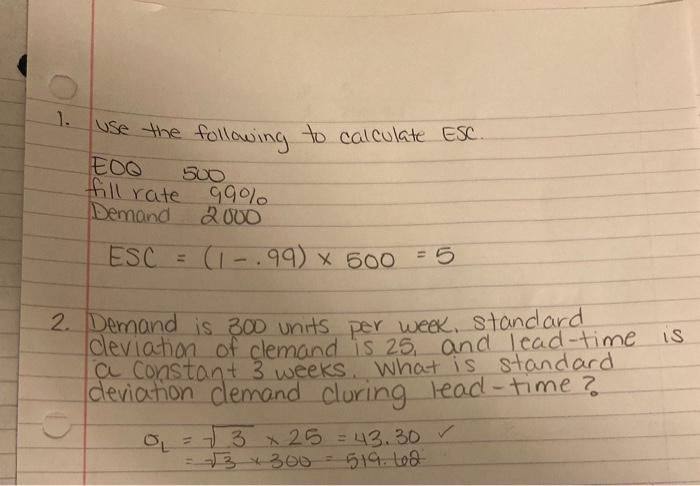 1. Use the following to calculate ESC.
EOQ 500
fill rate 99%
Demand 2000
ESC = (1-.99) × 500 = 5
2. Demand is 300 units per week, standard
deviation of demand is 25, and lead-time is
a constant 3 weeks. What is standard
deviation demand during lead-time?
σL = √3 × 25 = 43.30 ✓
= √3 × 300 = 519.62